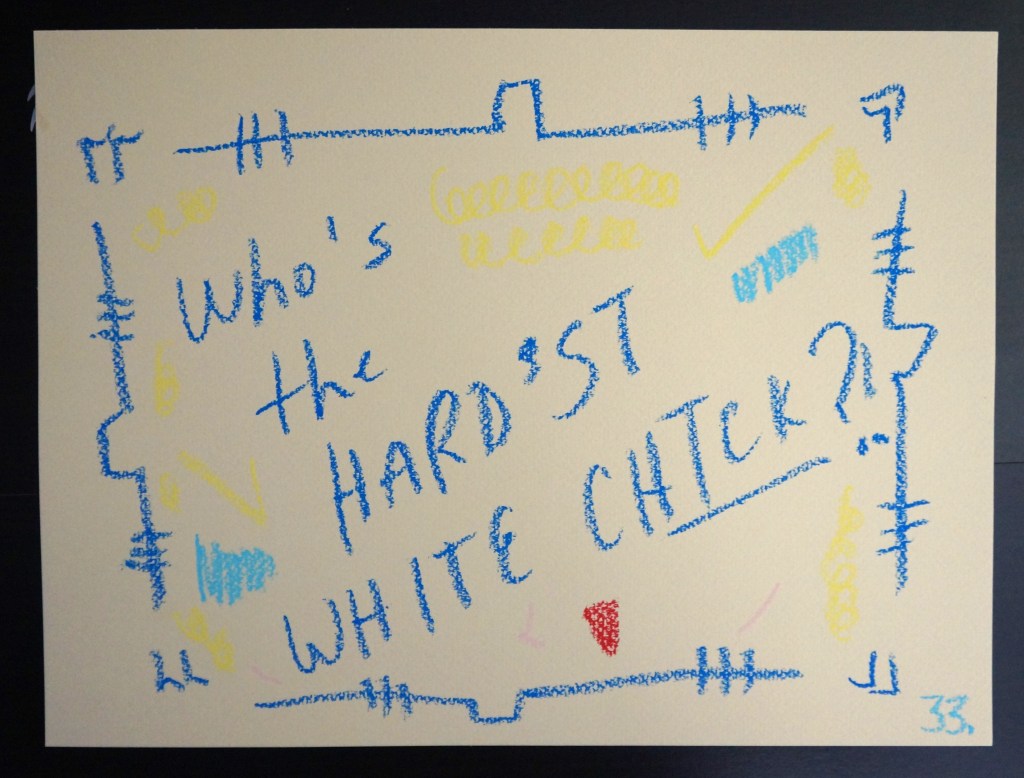 Who's
the
HARD'ST
WHITE CHICK?!
33.